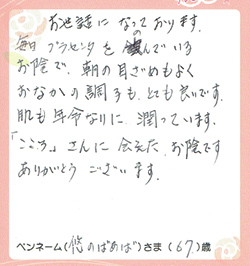 お世話になっております。
毎日プラセンタを飲んでいる
お陰で、朝の目ざめもよく
おなかの調子も、とても良いです。
肌も年令なりに潤っています。
「こころ」さんに会えたお陰です
ありがとうございます。
ペンネーム(悠のばあば)さま(67)歳